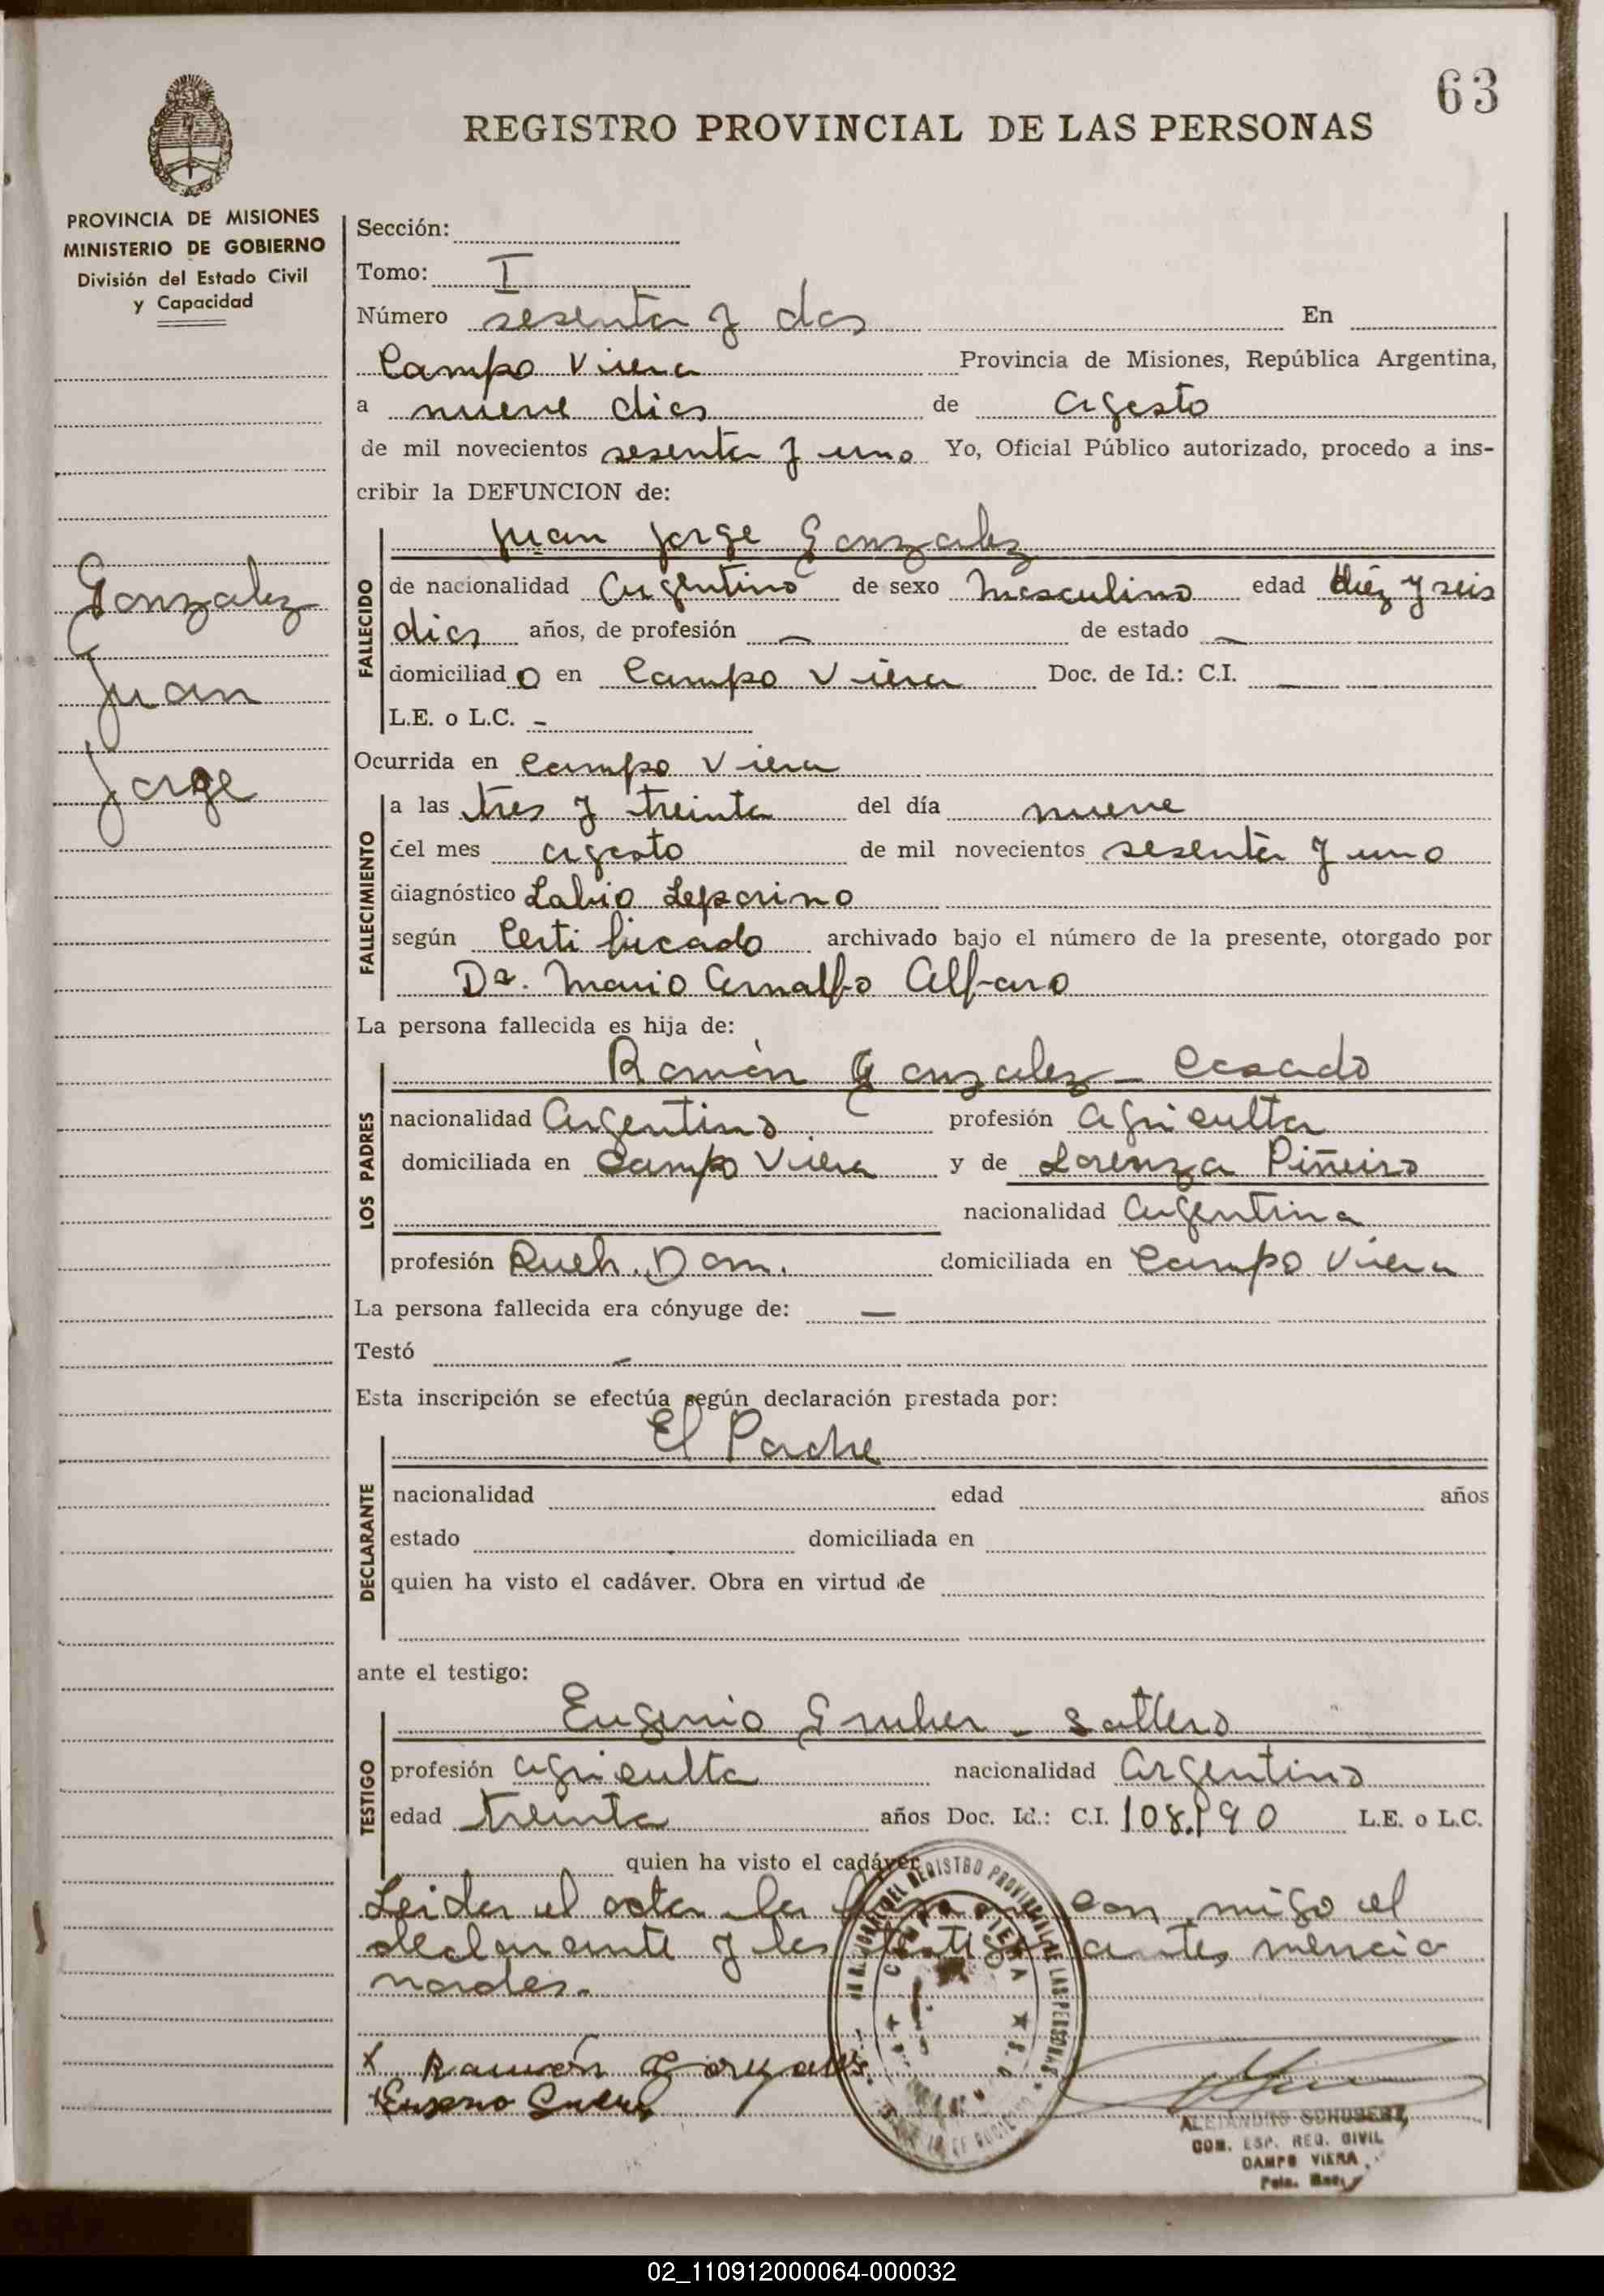 63
REGISTRO PROVINCIAL DE LAS PERSONAS
PROVINCIA DE MISIONES
MINISTERIO DE GOBIERNO
División del Estado Civil
y Capacidad
Gonzalez
Juan
Jorge
Sección:
Tomo: I
Número sesenta y dos En
Campo Viera Provincia de Misiones, República Argentina,
a nueve dias de agosto
de mil novecientos sesenta y uno Yo, Oficial Público autorizado, procedo a ins-
cribir la DEFUNCION de:
FALLECIDO
Juan Jorge Gonzalez
de nacionalidad Argentino de sexo Masculino edad diez y seis
dias años, de profesión — de estado —
domiciliado en Campo Viera Doc. de Id.: C.I. —
L.E. o L.C. -
Ocurrida en Campo Viera
FALLECIMIENTO
a las tres y treinta del día nueve
del mes agosto de mil novecientos sesenta y uno
diagnóstico Labio Leporino
según Certificado archivado bajo el número de la presente, otorgado por
Dr. Mario Alfaro
La persona fallecida es hija de:
LOS PADRES
Ramón Gonzalez - Casado
nacionalidad Argentino profesión agriculta
domiciliada en Campo Viera y de Lorenza Piñeiro
nacionalidad Argentina
profesión Queh. Dom. domiciliada en Campo Viera
La persona fallecida era cónyuge de: —
Testó -
Esta inscripción se efectúa según declaración prestada por:
DECLARANTE
El Padre
nacionalidad edad años
estado domiciliada en
quien ha visto el cadáver. Obra en virtud de
ante el testigo:
TESTIGO
Eugenio Gruber - soltero
profesión agriculta nacionalidad Argentino
edad treinta años Doc. Id.: C.I. 108.190 L.E. o L.C.
quien ha visto el cadáver
Leida el acta la con migo el
declarante y los testigos antes mencio
nados.
x Ramón Gonzalez
x Eugenio Gruber
DEL REGISTRO PROVINCIAL DE LAS PERSONAS
CAMPO VIERA
ALEJANDRO SCHUBERT
REG. CIVIL
CAMPO VIERA